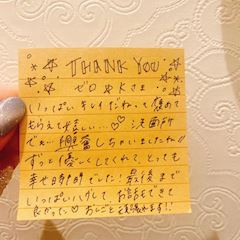 THANK YOU
ゼロやKさま
いっぱいキレイだねって褒めて
もらえて嬉しい...♡♡ 洗面所
でx... 興奮しちゃいましたね!!
ずっと優しくしてくれて、とっても
幸せ時間でした! 最後まで
いっぱいハグして お話もできて
良かった♡ おしごと 頑張れます!!